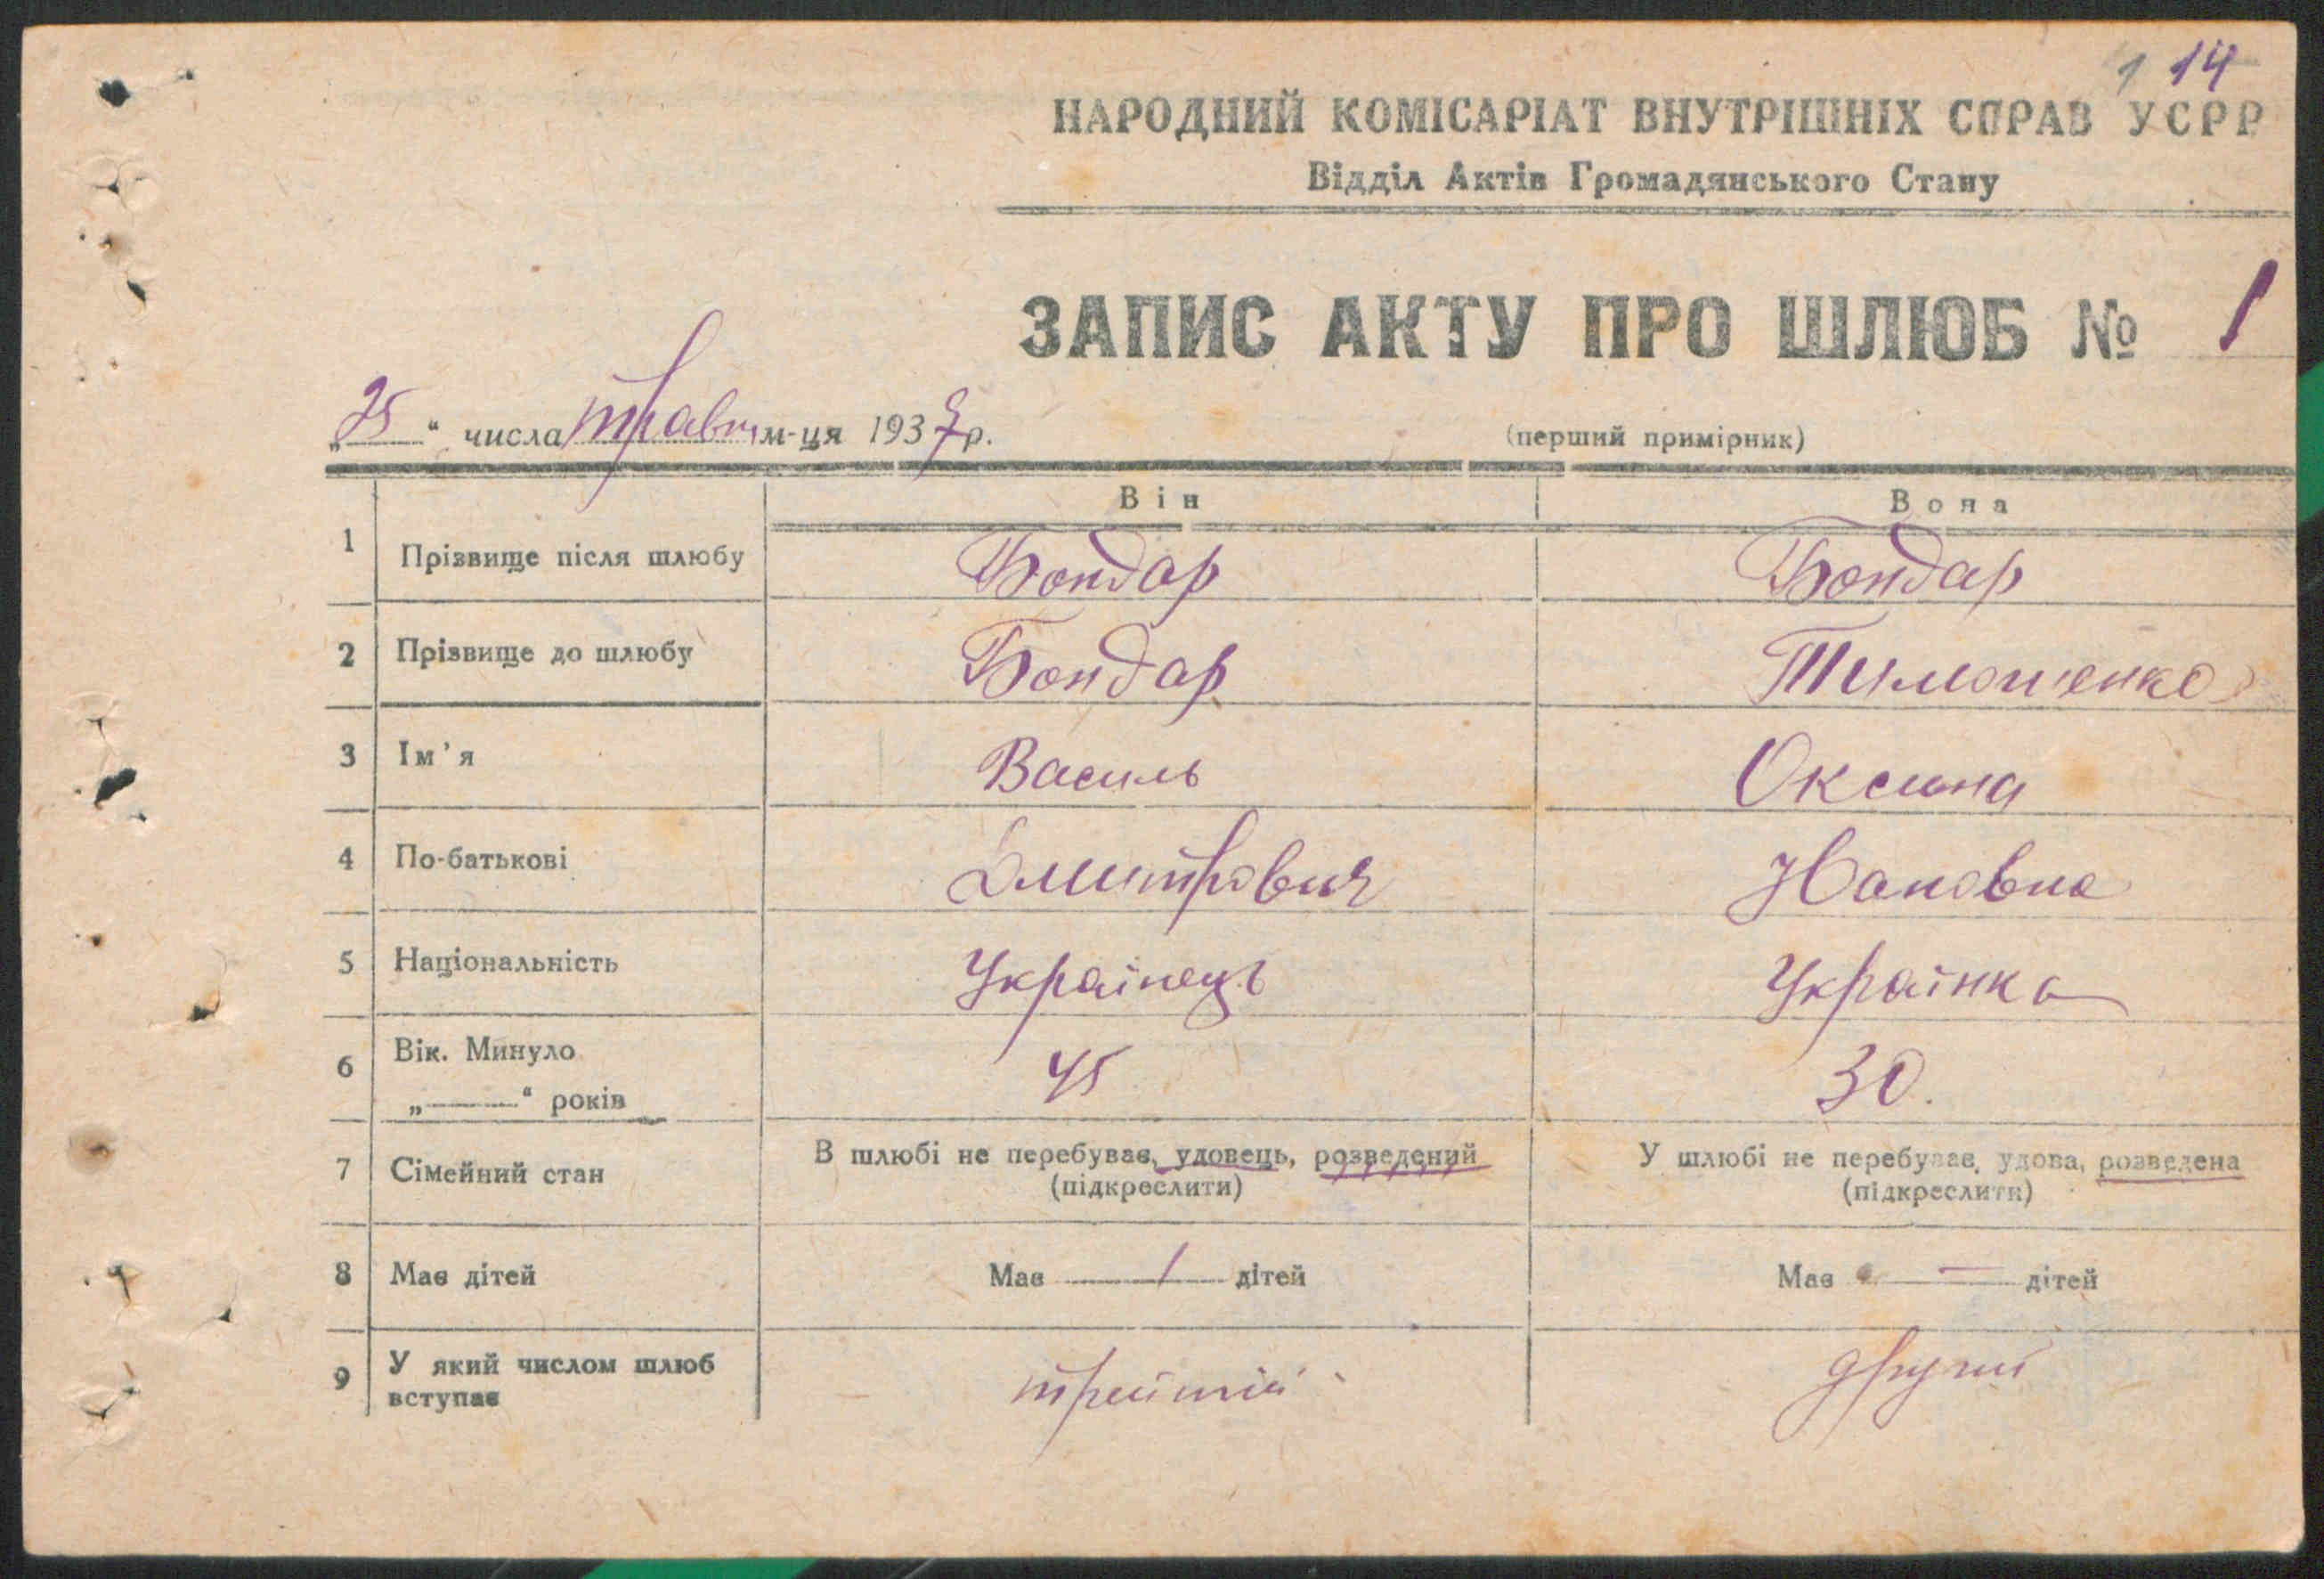 1 14
НАРОДНИЙ КОМІСАРІАТ ВНУТРІШНІХ СПРАВ УСРР
Відділ Актів Громадянського Стану
ЗАПИС АКТУ ПРО ШЛЮБ № 1
„25“ числа травн м-ця 1937 р.
(перший примірник)
Він Вона
1 Прізвище після шлюбу Бондар Бондар
2 Прізвище до шлюбу Бондар Тимошенко
3 Ім'я Василь Оксана
4 По-батькові Дмитрович
5 Національність Українець Українка
6 Вік. Минуло „——“ років 45 30.
7 Сімейний стан В шлюбі не перебуває, удовець, розведений (підкреслити) У шлюбі не перебуває, удова, розведена (підкреслити)
8 Має дітей Має 1 дітей Має — дітей
9 У який числом шлюб вступає третій другий